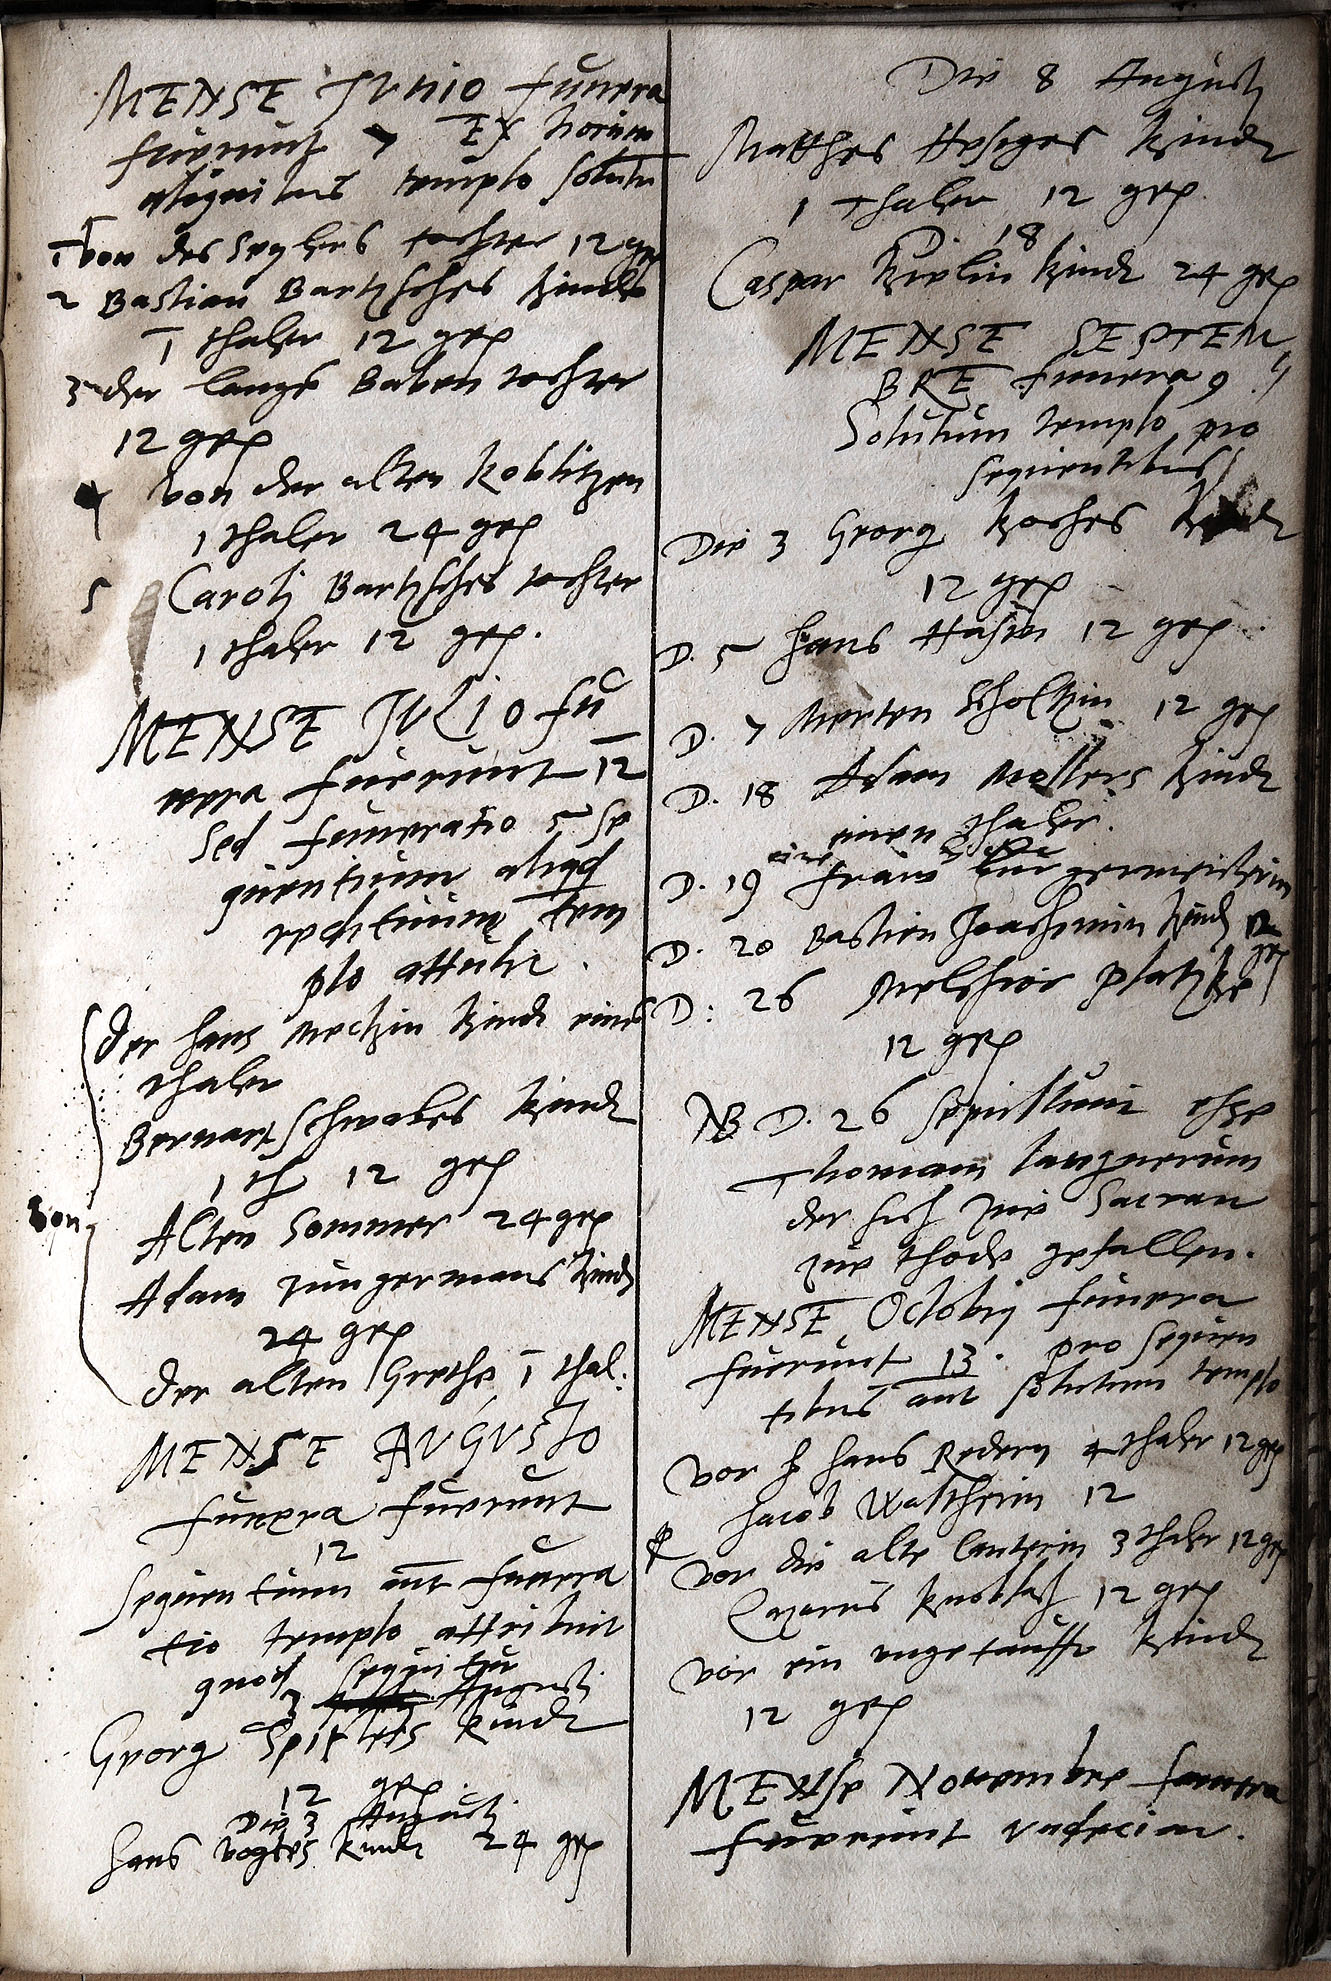 MENSE JUNIO funera
fuerunt 7 Ex horum
aliquibus templo solutu
1 von des Seglers tochter 12 gr
2 Bastian Bartzsches kinde
1 thaler 12 gr
3 der lange Baben tochter
12 gr
4 von der alten Koblitzen
1 thaler 24 gr
5 Caroli Bartzsches tochter
1 thaler 12 gr.
MENSE JULIO fu
nera fuerunt 12
sed funeratio 5 se
quentium aliqd
reditum tem
plo attulit.
der hans kindt eine
thaler
Bernart Schwabes kindt
1 th 12 gr
Von
Alten Sommer 24 gr
Adam Jungermans kindt
24 gr
der alten Grethe 1 thal:
MENSE AUGUSTO
funera fuerunt
12
Sequentium aut funera
tio templo attribuit
quod sequitur
2 Augusti
Georg kindt
12 gr.
Die 3 Augusti.
hans Vogtes kindt 24 gr
Die 8 Augusti
Matthes kindt
1 thaler 12 gr
18
Caspar kindt 24 gr
MENSE SEPTEM
BRE funera 9
Solutum templo pro
sequentibus
Die 3 Georg Koches kindt
12 gr
D. 5 hans 12 gr
D. 7 Merten Scholtzin 12 gr
D. 18 Adam kindt
einen thaler.
D. 19 fraw
D. 20 Bastien Joachimin kindt 12
gr
D: 26 Melchior Platzke
12 gr
NB D. 26
Thomam Langnerum
der sich zur Sacran
zue thode gefallen.
MENSE Octobri funera
fuerunt 13. pro sequen
tibus aut solutum templo
vor h hans Redern 4 thaler 12 gr
Jacob Waltherin 12
vor die alte Canterin 3 thaler 12 gr
Lazarus Knobloch 12 gr
vor ein ungetauffte kindt
12 gr
MENSE Novembre funera
fuerunt undecim.